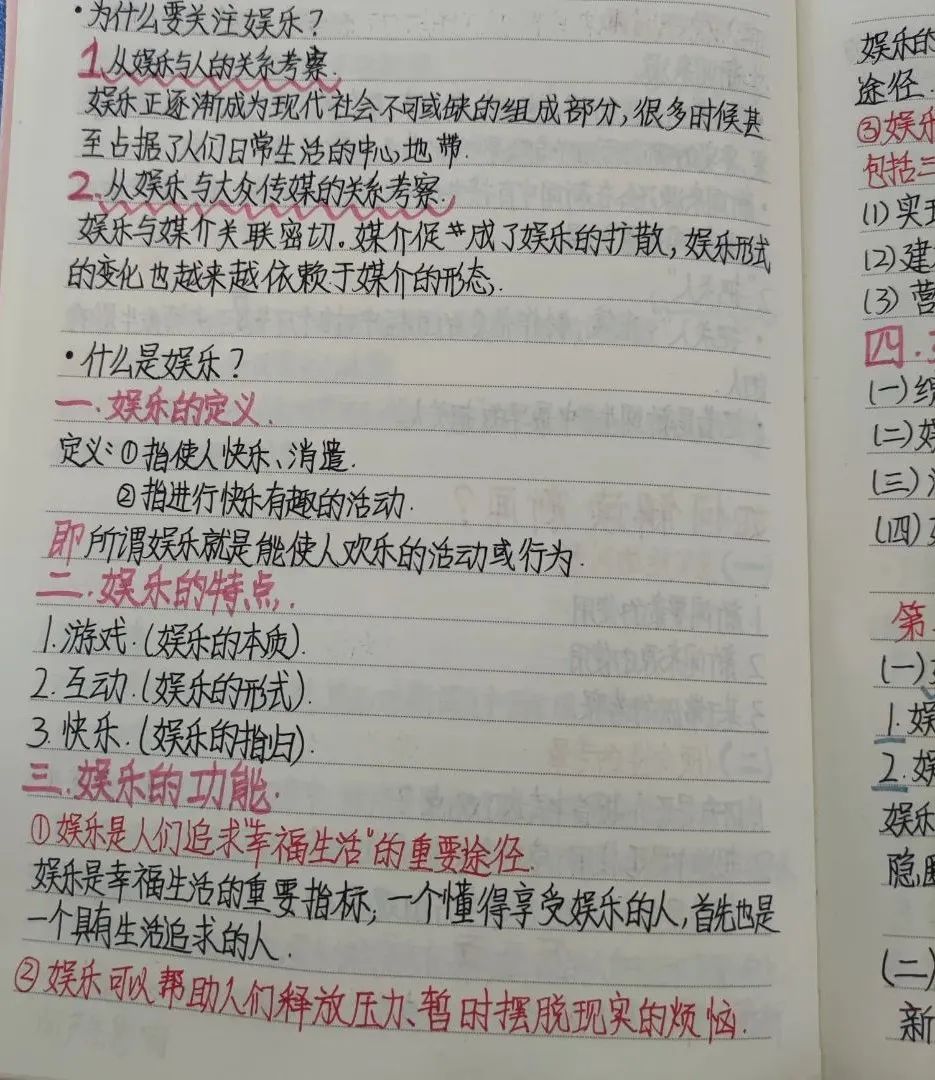 ·为什么要关注娱乐？
1.从娱乐与人的关系考察.
娱乐正逐渐成为现代社会不可或缺的组成部分,很多时候甚
至占据了人们日常生活的中心地带.
2.从娱乐与大众传媒的关系考察.
娱乐与媒介关联密切。媒介促成了娱乐的扩散,娱乐形式
的变化也越来越依赖于媒介的形态,.
·什么是娱乐？
一.娱乐的定义.
定义:①指使人快乐、消遣.
②指进行快乐有趣的活动.
即所谓娱乐就是能使人欢乐的活动或行为.
二.娱乐的特点.
1.游戏.(娱乐的本质).
2.互动.(娱乐的形式).
3.快乐.(娱乐的指归).
三.娱乐的功能.
①娱乐是人们追求"幸福生活"的重要途径.
娱乐是幸福生活的重要指标,一个懂得享受娱乐的人,首先也是
一个具有生活追求的人.
②娱乐可以帮助人们释放压力、暂时摆脱现实的烦恼.
娱乐的
途径.
③娱乐
包括三
(1)实现
(2)建
(3)营
四.
(一)
(二)娱
(三)
(四)
第
(一)
1.娱
2.娱
娱乐
隐
(二)
新